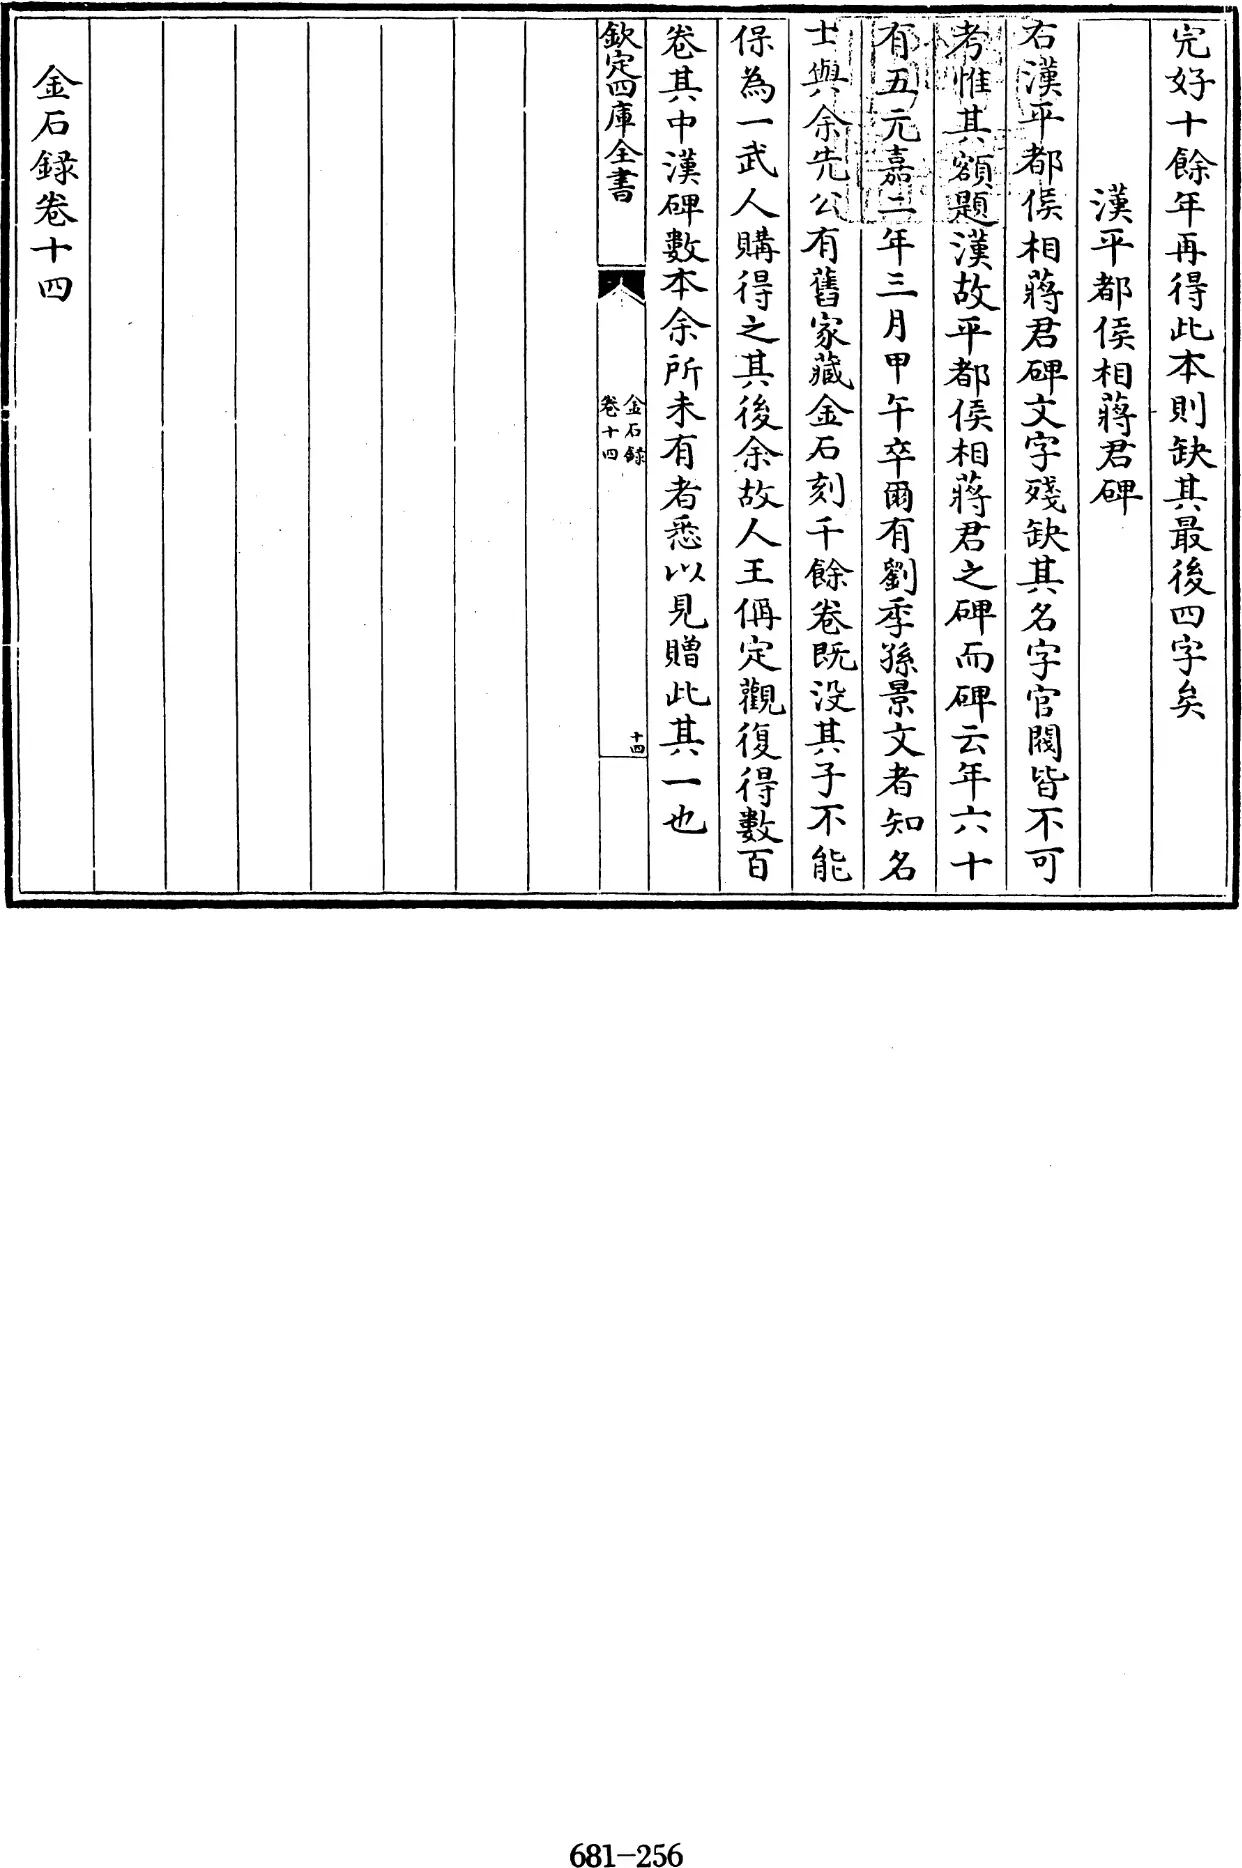 完好十餘年再得此本則缺其最後四字矣
漢平都侯相蔣君碑
右漢平都侯相蔣君碑文字殘缺其名字官閥皆不可
考惟其額題漢故平都侯相蔣君之碑而碑云年六十
有五元嘉二年三月甲午卒爾有劉季孫景文者知名
士與余先公有舊家藏金石刻千餘卷既没其子不能
保為一武人購得之其後余故人王偁定觀復得數百
卷其中漢碑數本余所未有者悉以見贈此其一也
欽定四庫全書
金石録
卷十四
十四
金石録卷十四
681-256